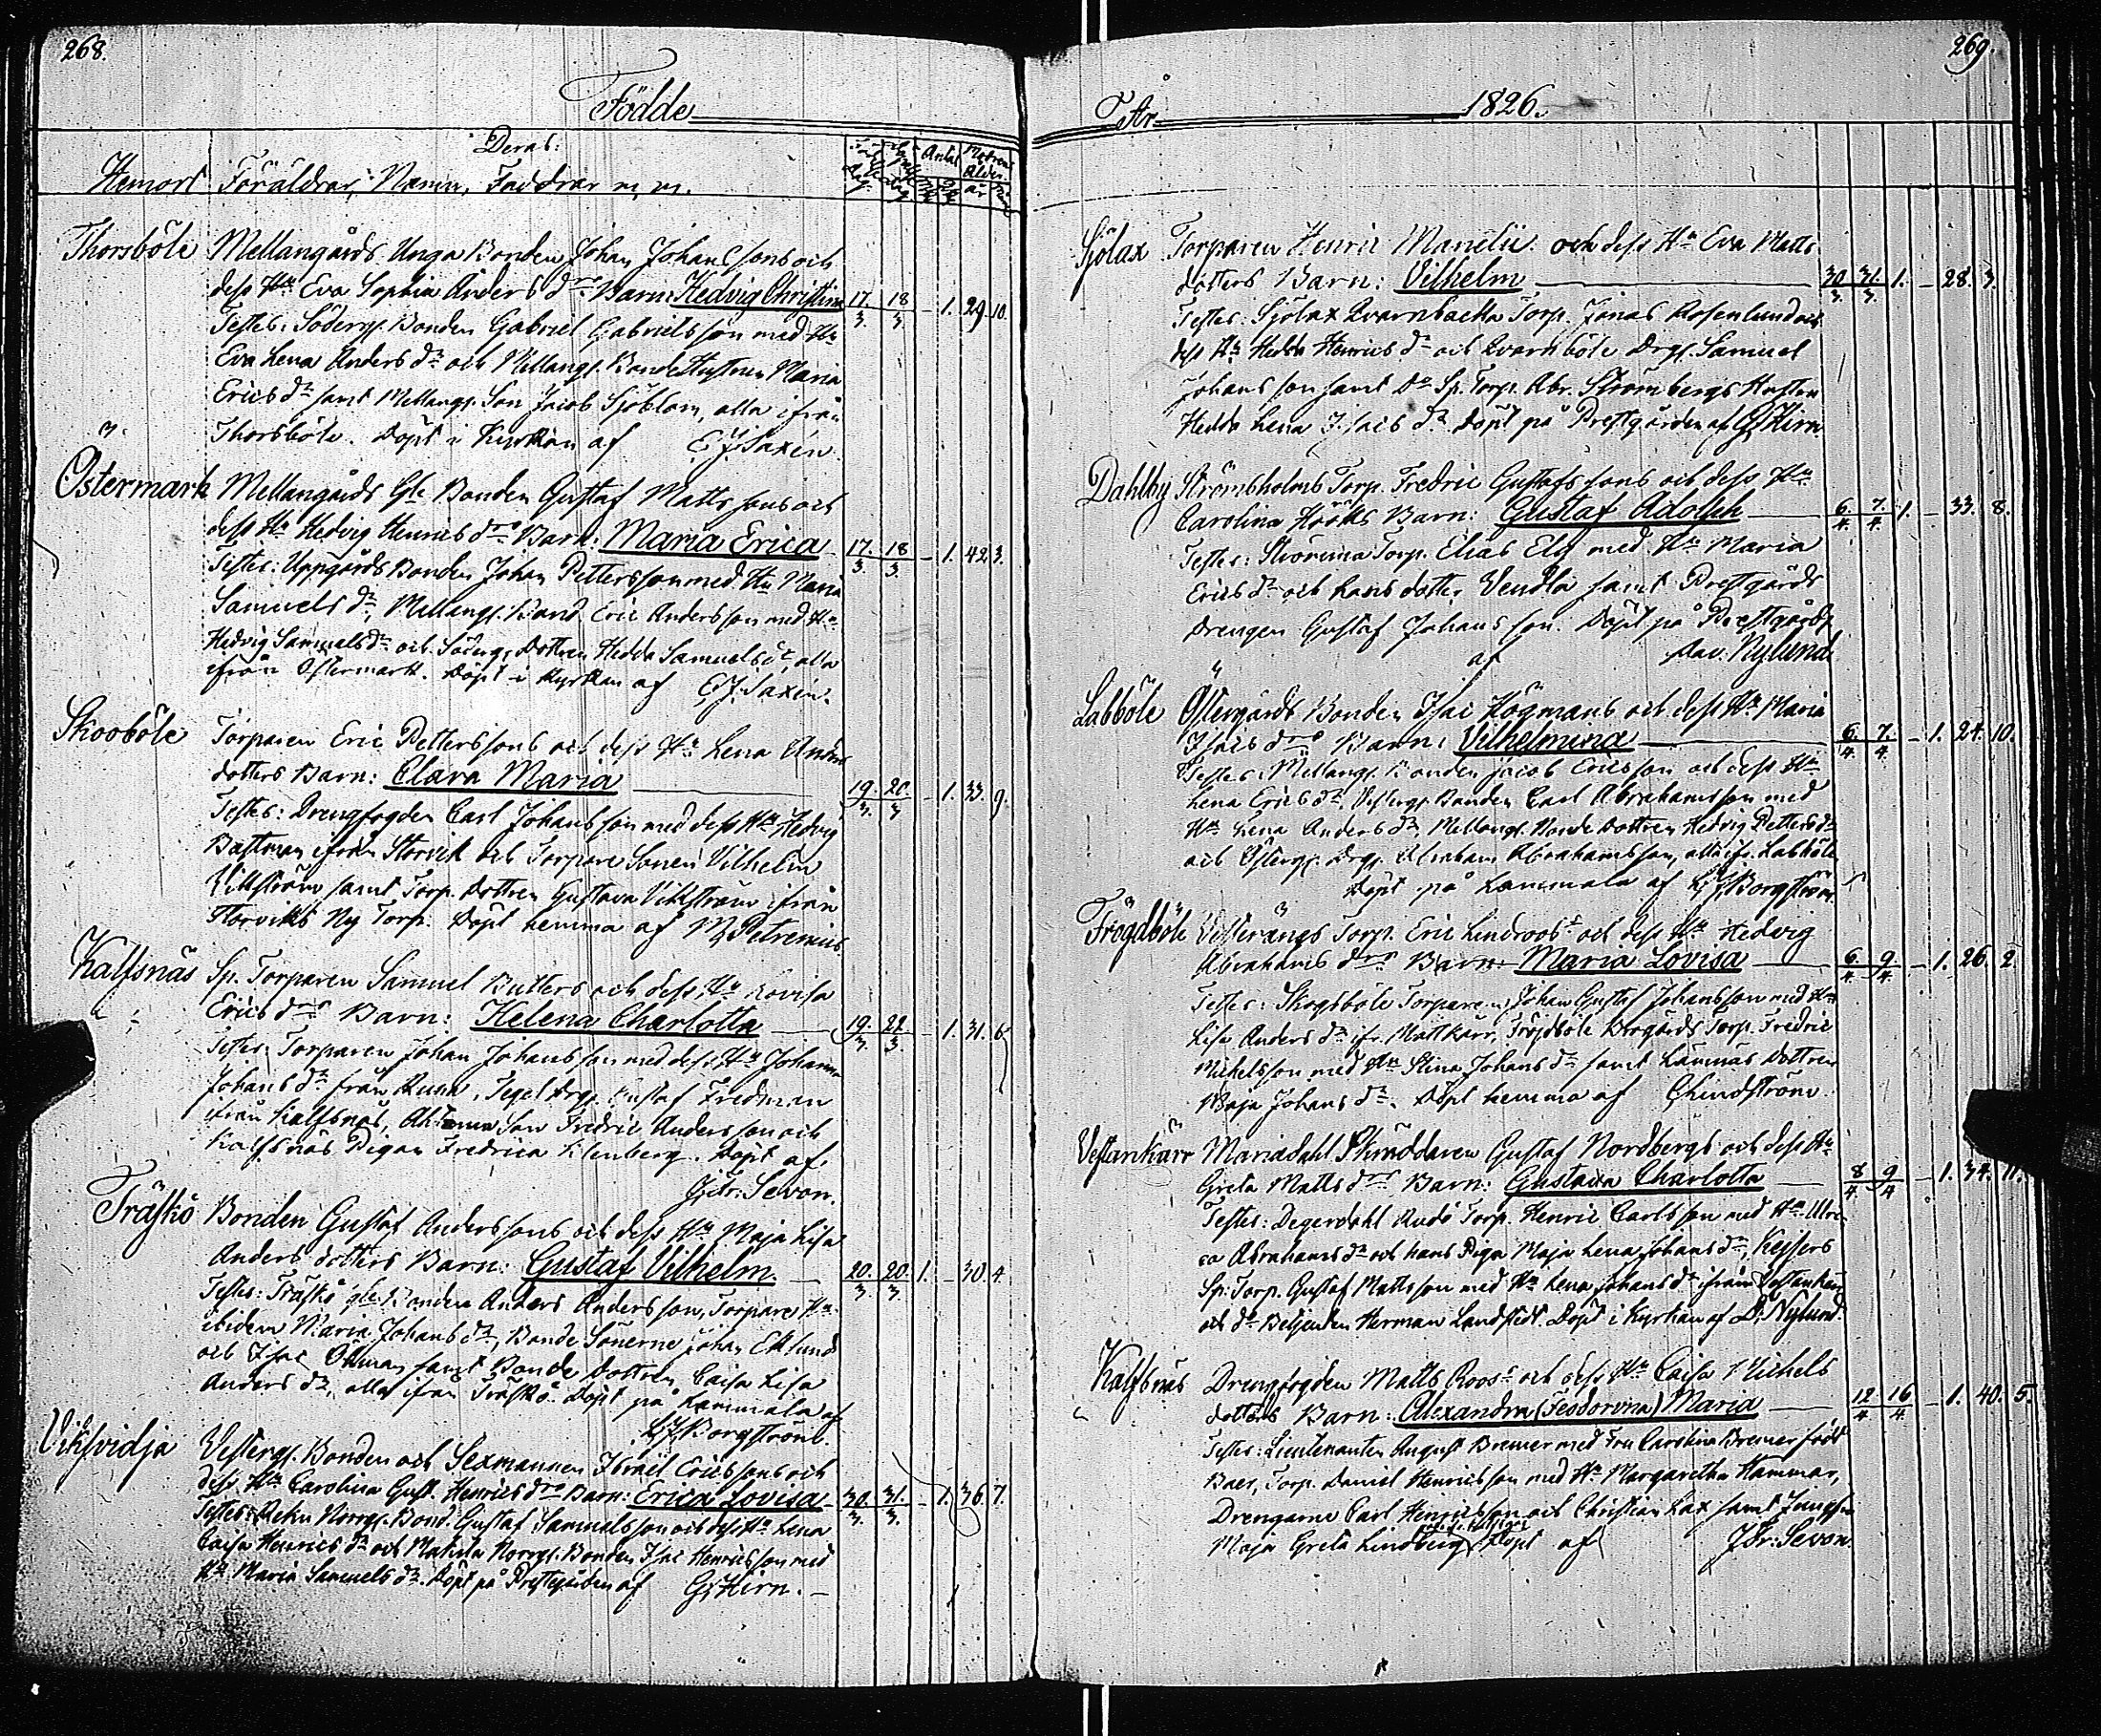 268.
Födde
Deras:
Hemort Föräldrar, Namn, Faddrar m. m.
Antal Modrens Ålder
år
Thorsböle Mellangårds Unga Bonden Johan Johanssons och
dess Hu Eva Sophia Anders drs Barn: Hedvig Christina 17/3 18/3 - 1. 29. 10.
Testes: Södergs. Bonden Gabriel Gabrielsson med Hu
Eva Lena Anders dr och Mellangs. Bonde Hustrun Maria
Erics dr samt Mellangs. Son Jacob Sjöblom, alla ifrån
Thorsböle. Döpt i Kyrkan af E. J. Saxén.
Östermark Mellangårds Gle Bonden Gustaf Mattssons och
dess Hu Hedvig Henrics drs Barn: Maria Erica 17/3. 18/3. - 1. 42. 3.
Testes: Uppgårds Bonden Johan Pettersson med Hu Maria
Samuels dr, Mellangs. Bond. Eric Andersson med Hu
Hedvig Samuels dr och Söderg. Dottren Hedda Samuels dr, alla
ifrån Östermark. Döpt i Kyrkan af E. J. Saxén.
Skooböle Torparen Eric Petterssons och dess Hu Lena Anders
dotters Barn: Clara Maria 19/3. 20/3 - 1. 33. 9.
Testes: Drengfogden Carl Johansson med dess Hu Hedvig
Bastman ifrån Storvik och Torpare Sonen Vilhelm
Vikström samt Torp. Dottren Gustava Vikström ifrån
Storviks Ny Torp. Döpt hemma af M. Petrenius.
Kalfsnäs Sp. Torparen Samuel Butters och dess Hu Lovisa
Erics drs Barn: Helena Charlotta 19/3. 22/3. - 1. 31. 6
Testes: Torparen Johan Johansson med dess Hu Johanna
Johans dr från Runa, Tegel Drg. Gustaf Fredman
ifrån Kalfsnäs, Son Fredric Andersson och
Kalfsnäs Pigan Fredrica Klenberg. Döpt af
Fr: Sevon.
Träskö Bonden Gustaf Anderssons och dess Hu Maja Lisa
Anders dotters Barn: Gustaf Vilhelm. 20/3. 20/3. 1. - 30. 4.
Testes: Träskö gle Bonden Anders Andersson, Torpare Hu
ibidem Maria Johans dr, Bonde Sönerne Johan Eklund
och Isac Öhman samt Bonde Dottren Caisa Lisa
Anders dr, alla ifrån Träskö. Döpt på Lammala af
L. J. Borgström.
Viksvidja Vestergs. Bonden och Sexmannen Israel Ericssons och
dess Hu Carolina Gust. Henrics drs Barn: Erica Lovisa 30/3. 31/3. - 1. 36. 7.
Testes: Reku Norrgs. Bond. Gustaf Samuelsson och dess Hu Lena
Caisa Henrics dr och Makila Norrgs. Bonden Isac Henricsson med
Hu Maria Samuels dr. Döpt på Prestegården af G. Hirn.
269.
År 1826.
Sjölax Torparen Henric Manelii och dess Hu Eva Matts
dotters Barn: Vilhelm 30/3 31/3. 1. - 28. 3.
Testes: Sjölax Qvarnbacka Torp. Jonas Rosenlund och
dess Hu Hedda Henrics dr och Qvarnböle Drgs. Samuel
Johansson samt Do Sp. Torp. Abr. Strömbergs Hustru
Hedda Lena Isacs dr. Döpt på Prestgården af G. Hirn
Dahlby Strömsholms Torp. Fredric Gustafssons och dess Hu
Carolina Hööks Barn: Gustaf Adolph 6./4. 7./4 1. - 33. 8.
Testes: Ströoma Torp. Elias Elg med Hu Maria
Erics dr och hans dotter Vendla samt Prestgårds
Drengen Gustaf Johansson. Döpt på Prestgårds
af Dav: Nylund
Labböle Östergårds Bonden Isac Högmans och dess Hu Maria
Isacs drs Barn: Vilhelmina 6./4. 7./4 - 1. 24. 10.
Testes: Mellangs. Bonden Jacob Ericsson och dess Hu
Lena Erics dr, Vestergs. Bonden Carl Abrahamsson med
Hu Lena Anders dr, Mellangs. Bonde Dottren Hedvig Petters dr
och Östergs. Drgs. Abraham Abrahamsson, alla ifr. Labböle
Döpt på Lammala af L. J. Borgström.
Frögdböle Vesterängs Torp. Eric Lindroos och dess Hu Hedvig
Abrahams drs Barn: Maria Lovisa 6/4 9/4 - 1. 26. 2.
Testes: Skogsböle Torparen Johan Gustaf Johansson med Hu
Lisa Anders dr ifr. Mattkärr, Fröjdböle Torp. Fredric
Michelsson med Hu Stina Johans dr samt Lamnäs Dottren
Maja Johans dr. Döpt hemma af C. Lindström.
Vestankärr Mariadahl Skräddaren Gustaf Nordbergs och dess Hu
Greta Matts drs Barn: Gustava Charlotta 8/4 9/4 - 1. 34. 11.
Testes: Degerdahl Rudö Torp. Henric Carlsson med Hu Ulri-
ca Abrahams dr och hans Piga Maja Lena Johans dr, Kessers
Sp: Torp. Gustaf Mattsson med Hu Lena Johans dr ifrån Vestankärr
och do Betjenten Herman Landstedt. Döpt i Kyrkan af D. Nylund.
Kalfsnäs Drengfogden Matts Roos och dess Hu Caisa Michels
dotters Barn: Alexandra (Feodorovna) Maria 12/4 16/4 - 1. 40. 5.
Testes: Lieutenanten August Bremer med Fru Carolina Bremer född
Baer, Torp. Daniel Henricsson med Hu Margaretha Hammar,
Drengarne Carl Henricsson och Christian Lax samt Jungfru
Maja Greta Lindberg, Döpt af J. Fr: Sevon.